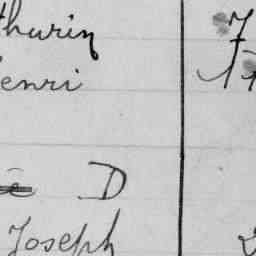 thurin 7
enri
D
Joseph 2